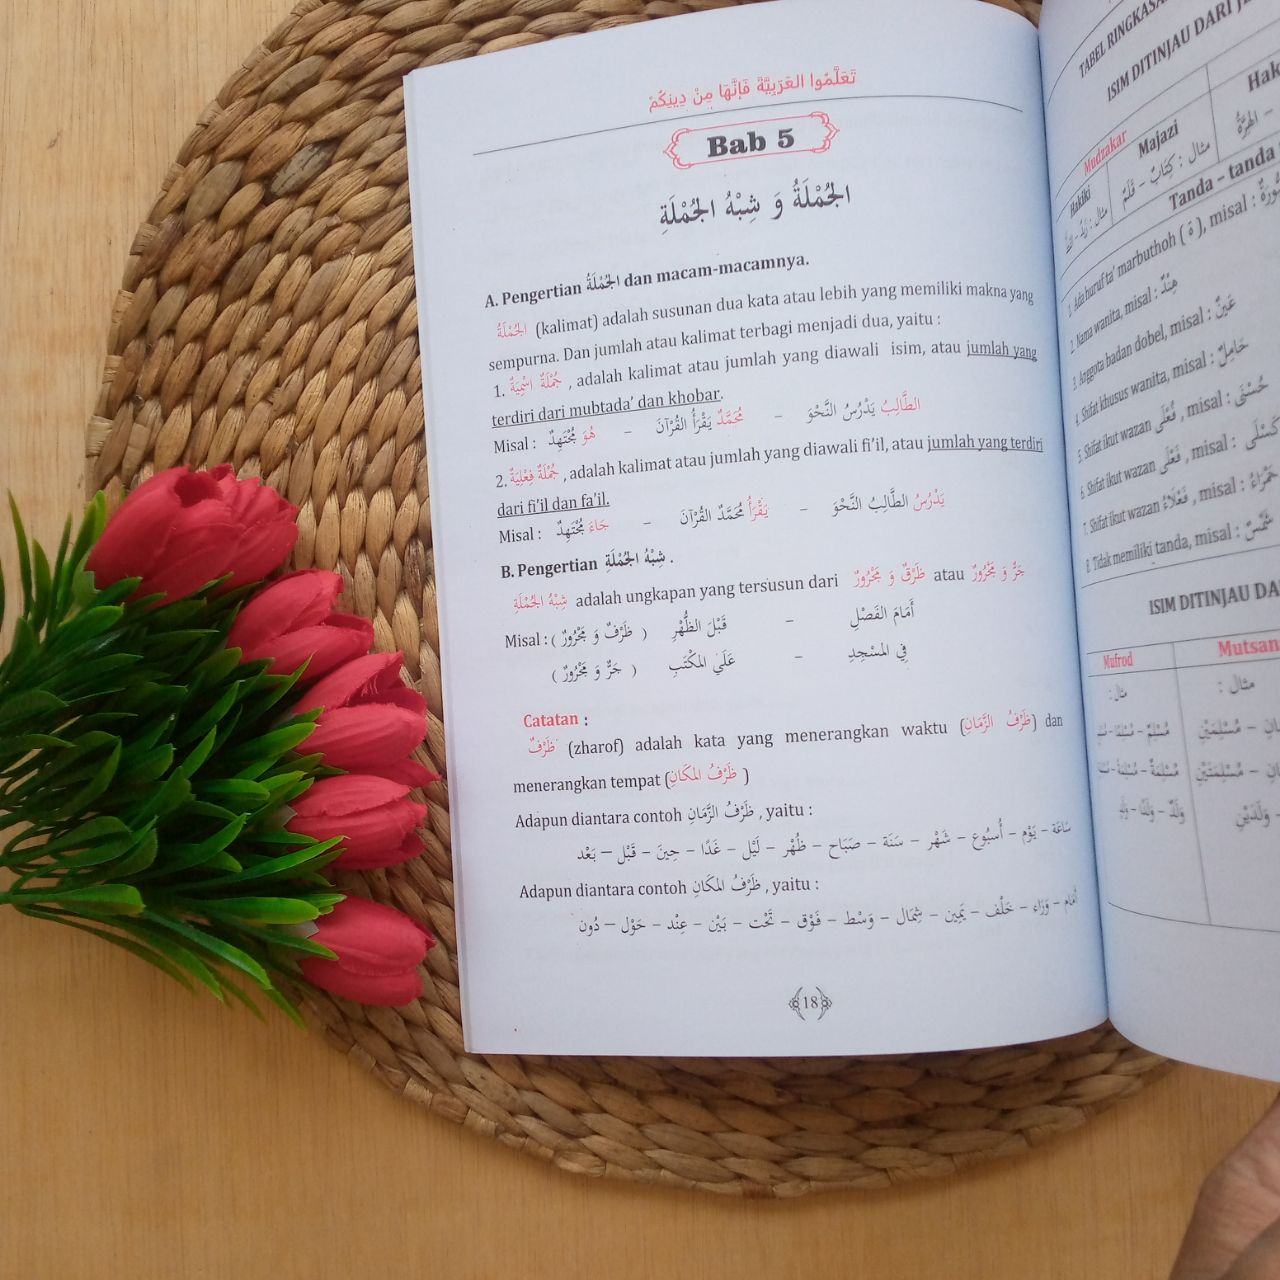 تَعَلَّمُوا العَرَبِيَّةَ فَإِنَّهَا مِنْ دِينِكُمْ
Bab 5
الجُمْلَةُ وَ شِبْهُ الجُمْلَةِ
A. Pengertian الجُمْلَةُ dan macam-macamnya.
الجُمْلَةُ (kalimat) adalah susunan dua kata atau lebih yang memiliki makna yang
sempurna. Dan jumlah atau kalimat terbagi menjadi dua, yaitu :
1. جُمْلَةٌ اِسْمِيَةٌ , adalah kalimat atau jumlah yang diawali isim, atau jumlah yang
terdiri dari mubtada’ dan khobar.
Misal : هُوَ مُجْتَهِدٌ – مُحَمَّدٌ يَقْرَأُ القُرْآنَ – الطَّالِبُ يَدْرُسُ النَّحْوَ
2. جُمْلَةٌ فِعْلِيَةٌ , adalah kalimat atau jumlah yang diawali fi’il, atau jumlah yang terdiri
dari fi’il dan fa’il.
Misal : جَاءَ مُجْتَهِدٌ – يَقْرَأُ مُحَمَّدٌ القُرْآنَ – يَدْرُسُ الطَّالِبُ النَّحْوَ
B. Pengertian شِبْهُ الجُمْلَةِ .
شِبْهُ الجُمْلَةِ adalah ungkapan yang tersusun dari ظَرْفٌ وَ مَجْرُورٌ atau جَرٌّ وَ مَجْرُورٌ
Misal : ( ظَرْفٌ وَ مَجْرُورٌ ) قَبْلَ الظُّهْرِ – أَمَامَ الفَصْلِ
( جَرٌّ وَ مَجْرُورٌ ) عَلَي المَكْتَبِ – فِي المَسْجِدِ
Catatan :
ظَرْفٌ (zharof) adalah kata yang menerangkan waktu (ظَرْفُ الزَّمَانِ) dan
menerangkan tempat (ظَرْفُ المَكَانِ )
Adapun diantara contoh ظَرْفُ الزَّمَانِ , yaitu :
سَاعَة – يَوْم – أُسبُوع – شَهْر – سَنَة – صَبَاح – ظُهْر – لَيْل – غَدًا – حِينَ – قَبْل – بَعْد
Adapun diantara contoh ظَرْفُ المَكَانِ , yaitu :
أَمَام – وَرَاء – خَلْف – يَمِين – شِمَال – وَسْط – فَوْق – تَحْت – بَيْن – عِنْد – حَوْل – دُون
18
TABEL RINGKASA
ISIM DITINJAU DARI JE
Mudzakar
Hakiki Majazi Hak
مثال : كِتَابٌ – قَلَمٌ
Tanda – tanda
1. Ada huruf ta’ marbuthoh ( ة ), misal :
2. Nama wanita, misal : هِنْدٌ
3. Anggota badan dobel, misal : عَيْنٌ
4. Shifat khusus wanita, misal : حَامِلٌ
5. Shifat ikut wazan فُعْلَى , misal : حُسْنَى
6. Shifat ikut wazan فَعْلَى , misal : كَسْلَى
7. Shifat ikut wazan فَعْلَاءُ , misal : حَمْرَاءُ
8. Tidak memiliki tanda, misal : شَمْسٌ
ISIM DITINJAU DA
Mufrod Mutsan
مثال : مثال :